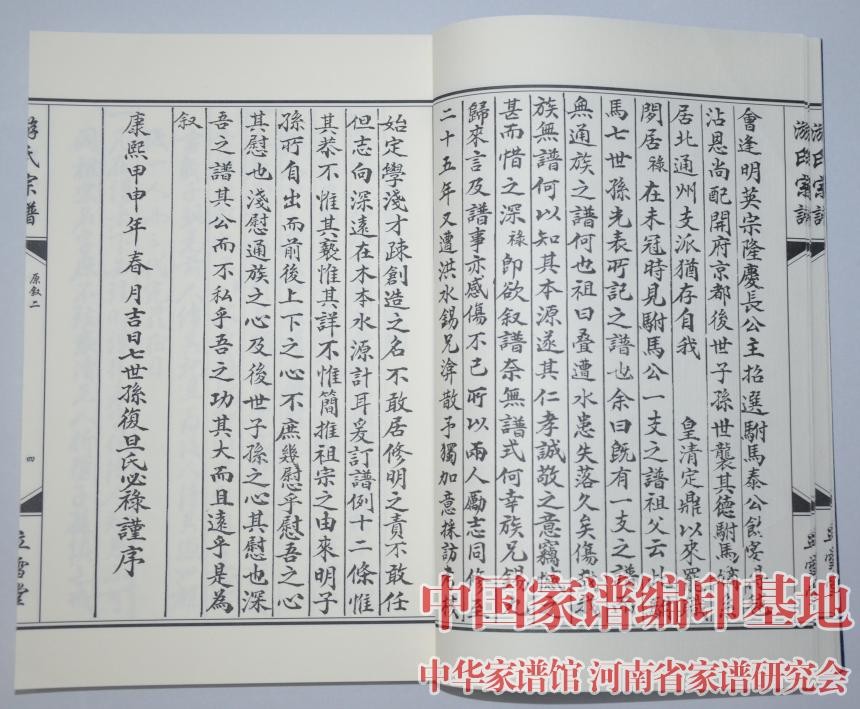 會逢明英宗隆慶長公主招選駙馬泰公飲宴
沾恩尚配開府京都後世子孫世襲其德駙馬
居北通州支派猶存自我 皇清定鼎以來
閒居祿在未冠時見駙馬公一支之譜祖父云
馬七世孫光表所記之譜也余曰既有一支之譜
無通族之譜何也祖曰叠遭水患失落久矣傷
族無譜何以知其本源遂其仁孝誠敬之意竊
甚而惜之深祿即欲叙譜奈無譜式何幸族兄錫
歸來言及譜事亦感傷不已所以兩人勵志同
二十五年又遭洪水錫兄渰散予獨加意採訪
始定學淺才疎創造之名不敢居修明之責不敢任
但志向深遠在木本水源計耳爰訂譜例十二條惟
其恭不惟其褻惟其詳不惟簡推祖宗之由來明子
孫所自出而前後上下之心不庶幾慰乎慰吾之心
其慰也淺慰通族之心及後世子孫之心其慰也深
吾之譜其公而不私乎吾之功其大而且遠乎是為
叙
康熙甲申年春月吉日七世孫復旦氏必祿謹序
游氏宗譜
原叙二
四
立雪堂
游氏宗譜
中国家谱编印基地
中华家谱馆 河南省家谱研究会